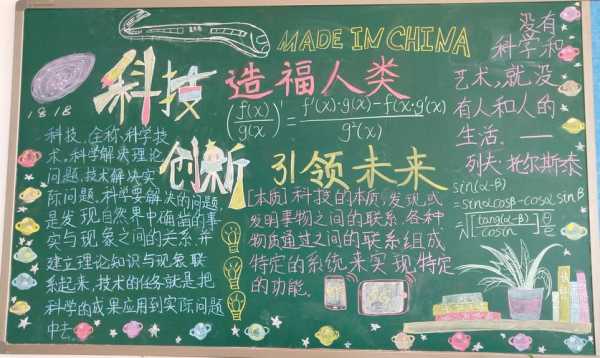 MADE IN CHINA
科技 造福人类
1818
(f(x)/g(x))' = f'(x)·g(x)-f(x)·g'(x)/g²(x)
创新 引领未来
没有
科学和
艺术,就没
有人和人的
生活。——
列夫·托尔斯泰
科技,全称科学技
术,科学解决理论
问题,技术解决实
际问题,科学要解决的问题
是发现自然界中确凿的事
实与现象之间的关系,并
建立理论知识与现象联
系起来,技术的任务就是把
科学的成果应用到实际问题
中去。
[本质]科技的本质:发现或
发明事物之间的联系,各种
物质通过之间的联系组成
特定的系统来实现特定
的功能。
sin(α-β)
=sinαcosβ-cosα sinβ